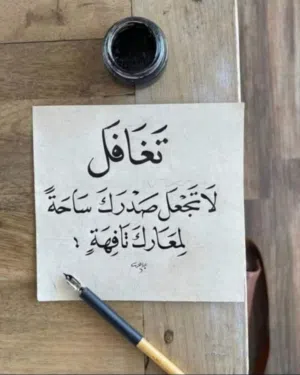 تَغَافَل
لَا تَجْعَل صَدْرَكَ سَاحَةً
لِمَعَارِكَ تَافِهَةٍ ؛